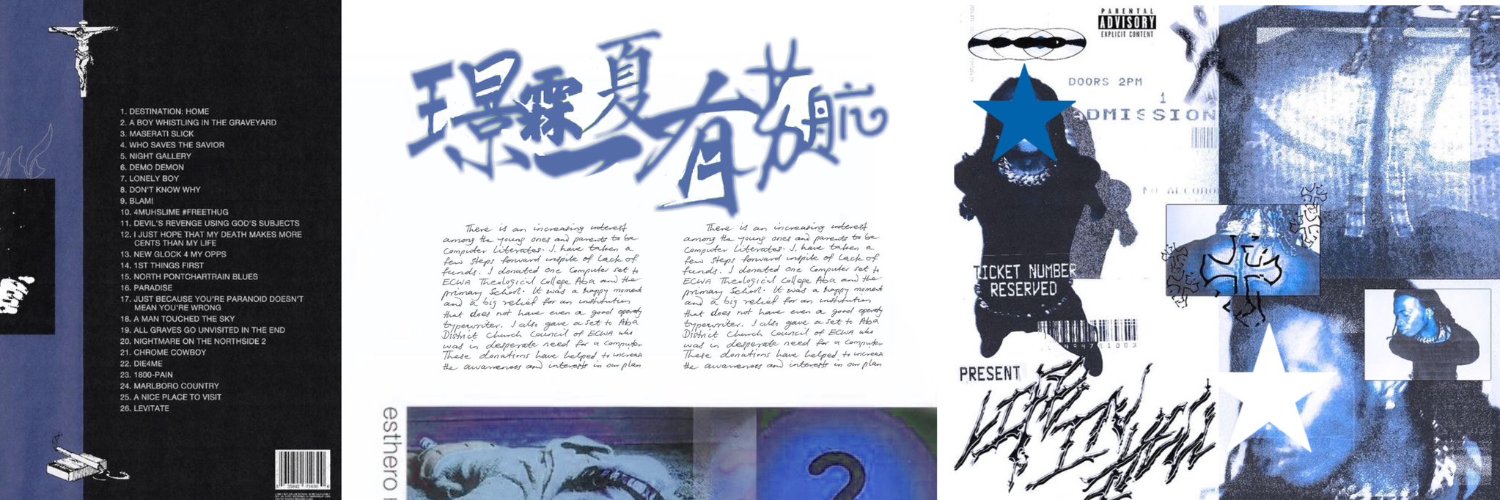 1. DESTINATION: HOME
2. A BOY WHISTLING IN THE GRAVEYARD
3. MASERATI SLICK
4. WHO SAVES THE SAVIOR
5. NIGHT GALLERY
6. DEMO DEMON
7. LONELY BOY
8. DON'T KNOW WHY
9. BLAM!
10. 4MUHSLIME #FREETHUG
11. DEVIL'S REVENGE USING GOD'S SUBJECTS
12. I JUST HOPE THAT MY DEATH MAKES MORE
CENTS THAN MY LIFE
13. NEW GLOCK 4 MY OPPS
14. 1ST THINGS FIRST
15. NORTH PONTCHARTRAIN BLUES
16. PARADISE
17. JUST BECAUSE YOU'RE PARANOID DOESN'T
MEAN YOU'RE WRONG
18. A MAN TOUCHED THE SKY
19. ALL GRAVES GO UNVISITED IN THE END
20. NIGHTMARE ON THE NORTHSIDE 2
21. CHROME COWBOY
22. DIE4ME
23. 1800-PAIN
24. MARLBORO COUNTRY
25. A NICE PLACE TO VISIT
26. LEVITATE
璟霖夏一有苏航
There is an increasing interest
among the young ones and parents to be
Computer Literates. I have taken a
few steps forward inspite of lack of
funds. I donated one Computer set to
ECWA Theological College Aba and the
primary School. It was a happy moment
and a big relief for an institution
that does not have even a good operating
typewriter. I also gave a set to Aba
District Church Council of ECWA who
was in desperate need for a computer
These donations have helped to increase
the awareness and interests in our plan
There is an increasing interest
among the young ones and parents to be
Computer Literates. I have taken a
few steps forward inspite of lack of
funds. I donated one Computer set to
ECWA Theological College Aba and the
primary School. It was a happy moment
and a big relief for an institution
that does not have even a good operating
typewriter. I also gave a set to Aba
District Church Council of ECWA who
was in desperate need for a computer
These donations have helped to increase
the awareness and interests in our plan
esthero
2
PARENTAL
ADVISORY
EXPLICIT CONTENT
DOORS 2PM
1
ADMISSION
TICKET NUMBER
RESERVED
PRESENT